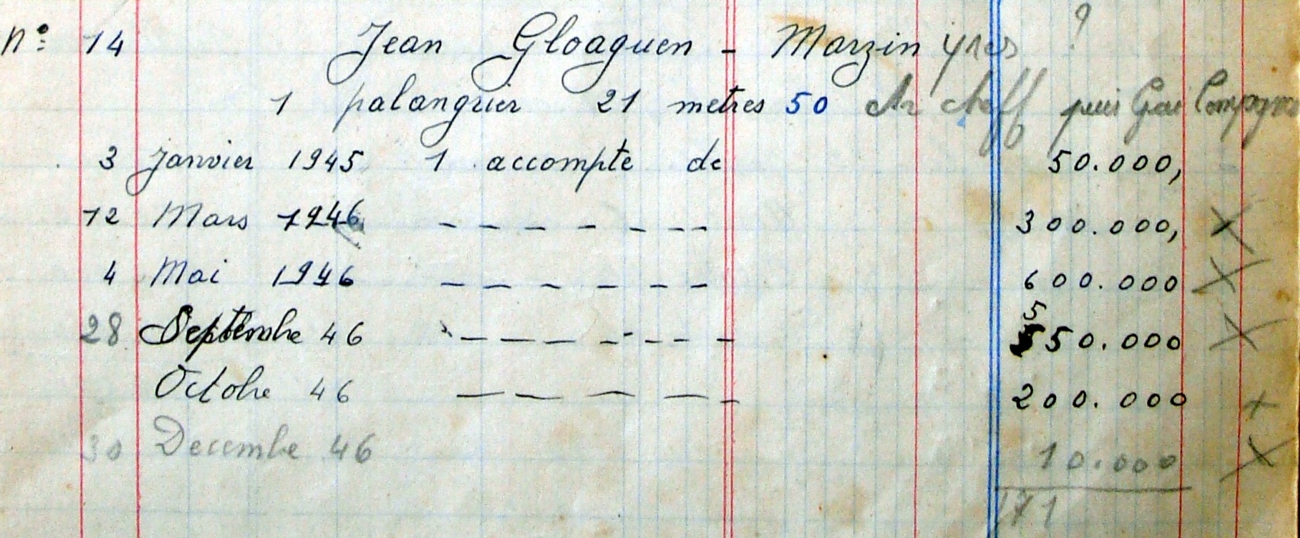 N° 14 Jean Gloaguen - Marzin yves ?
1 palangrier 21 metres 50 Ar puis
3 Janvier 1945 1 accompte de 50.000,
12 Mars 1946 - - - - - - - 300.000, X
4 Mai 1946 - - - - - - - 600.000 X
28 Septembre 46 - - - - - - - 550.000 X
Octobre 46 - - - - - 200.000 X
30 Decembre 46 10.000 X
171